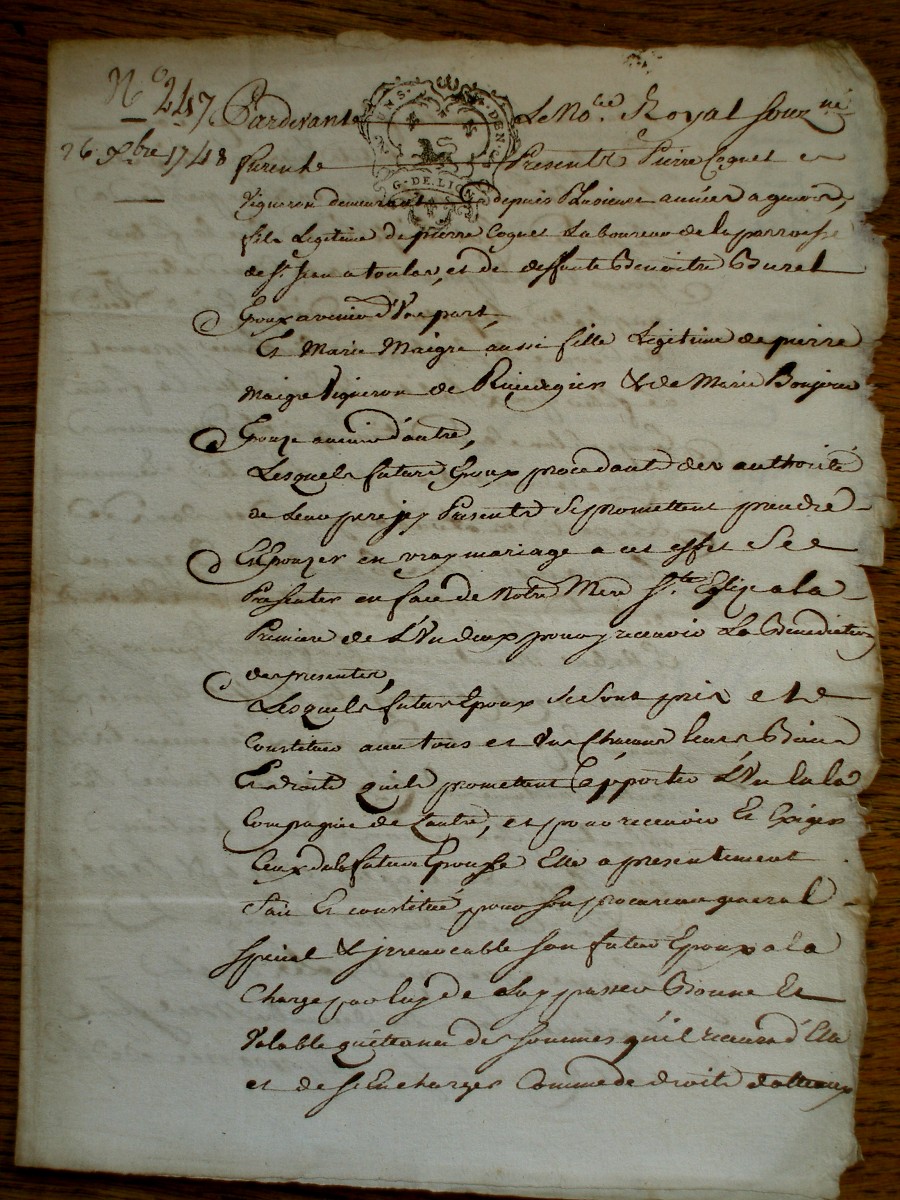 N° 247
26 Xbre 1748
DEN
G. DE LION
Pardevant Le No.re Royal souz.né
furent Presents Pierre Coquet
Vigneron demeurant depuis Plusieurs années a
fils Legitime de pierre Coquet Laboureur de la parroisse
de St. Jean a toulas, et de deffunte Benoitte Burel
Epoux avenir d'Vne part
Et Marie Maigre aussi fille Legitime de pierre
Maigre Vigneron de & de Marie Bonjour
Epouze avenir d'autre,
Lesquels futurs Epoux procedants des authorité
de Leurs peres Presents se promettent prendre
Et Epouzer en vray mariage a cet effet se
Presenter en face de Notre Mere Ste. Eglize a la
Premiere de L'Vn deux pour y recevoir La Benediction
des presentes,
Lesquels futurs Epoux se sont pris et
Constitué avec tous et Vns Chacuns leurs Biens
Et droits quils promettent apporter L'Vn En la
Compagnie de Lautre, et pour recevoir Et Exiger
Ceux de la future Epouse Elle a presentement
fait Et constitué pour son procureur general
special & jrrevocable son futur Epoux a la
Charge par luy de passer Bonne Et
Valable quittance des sommes qu'il recevra d'Elle
et de s'En charger Comme de droit